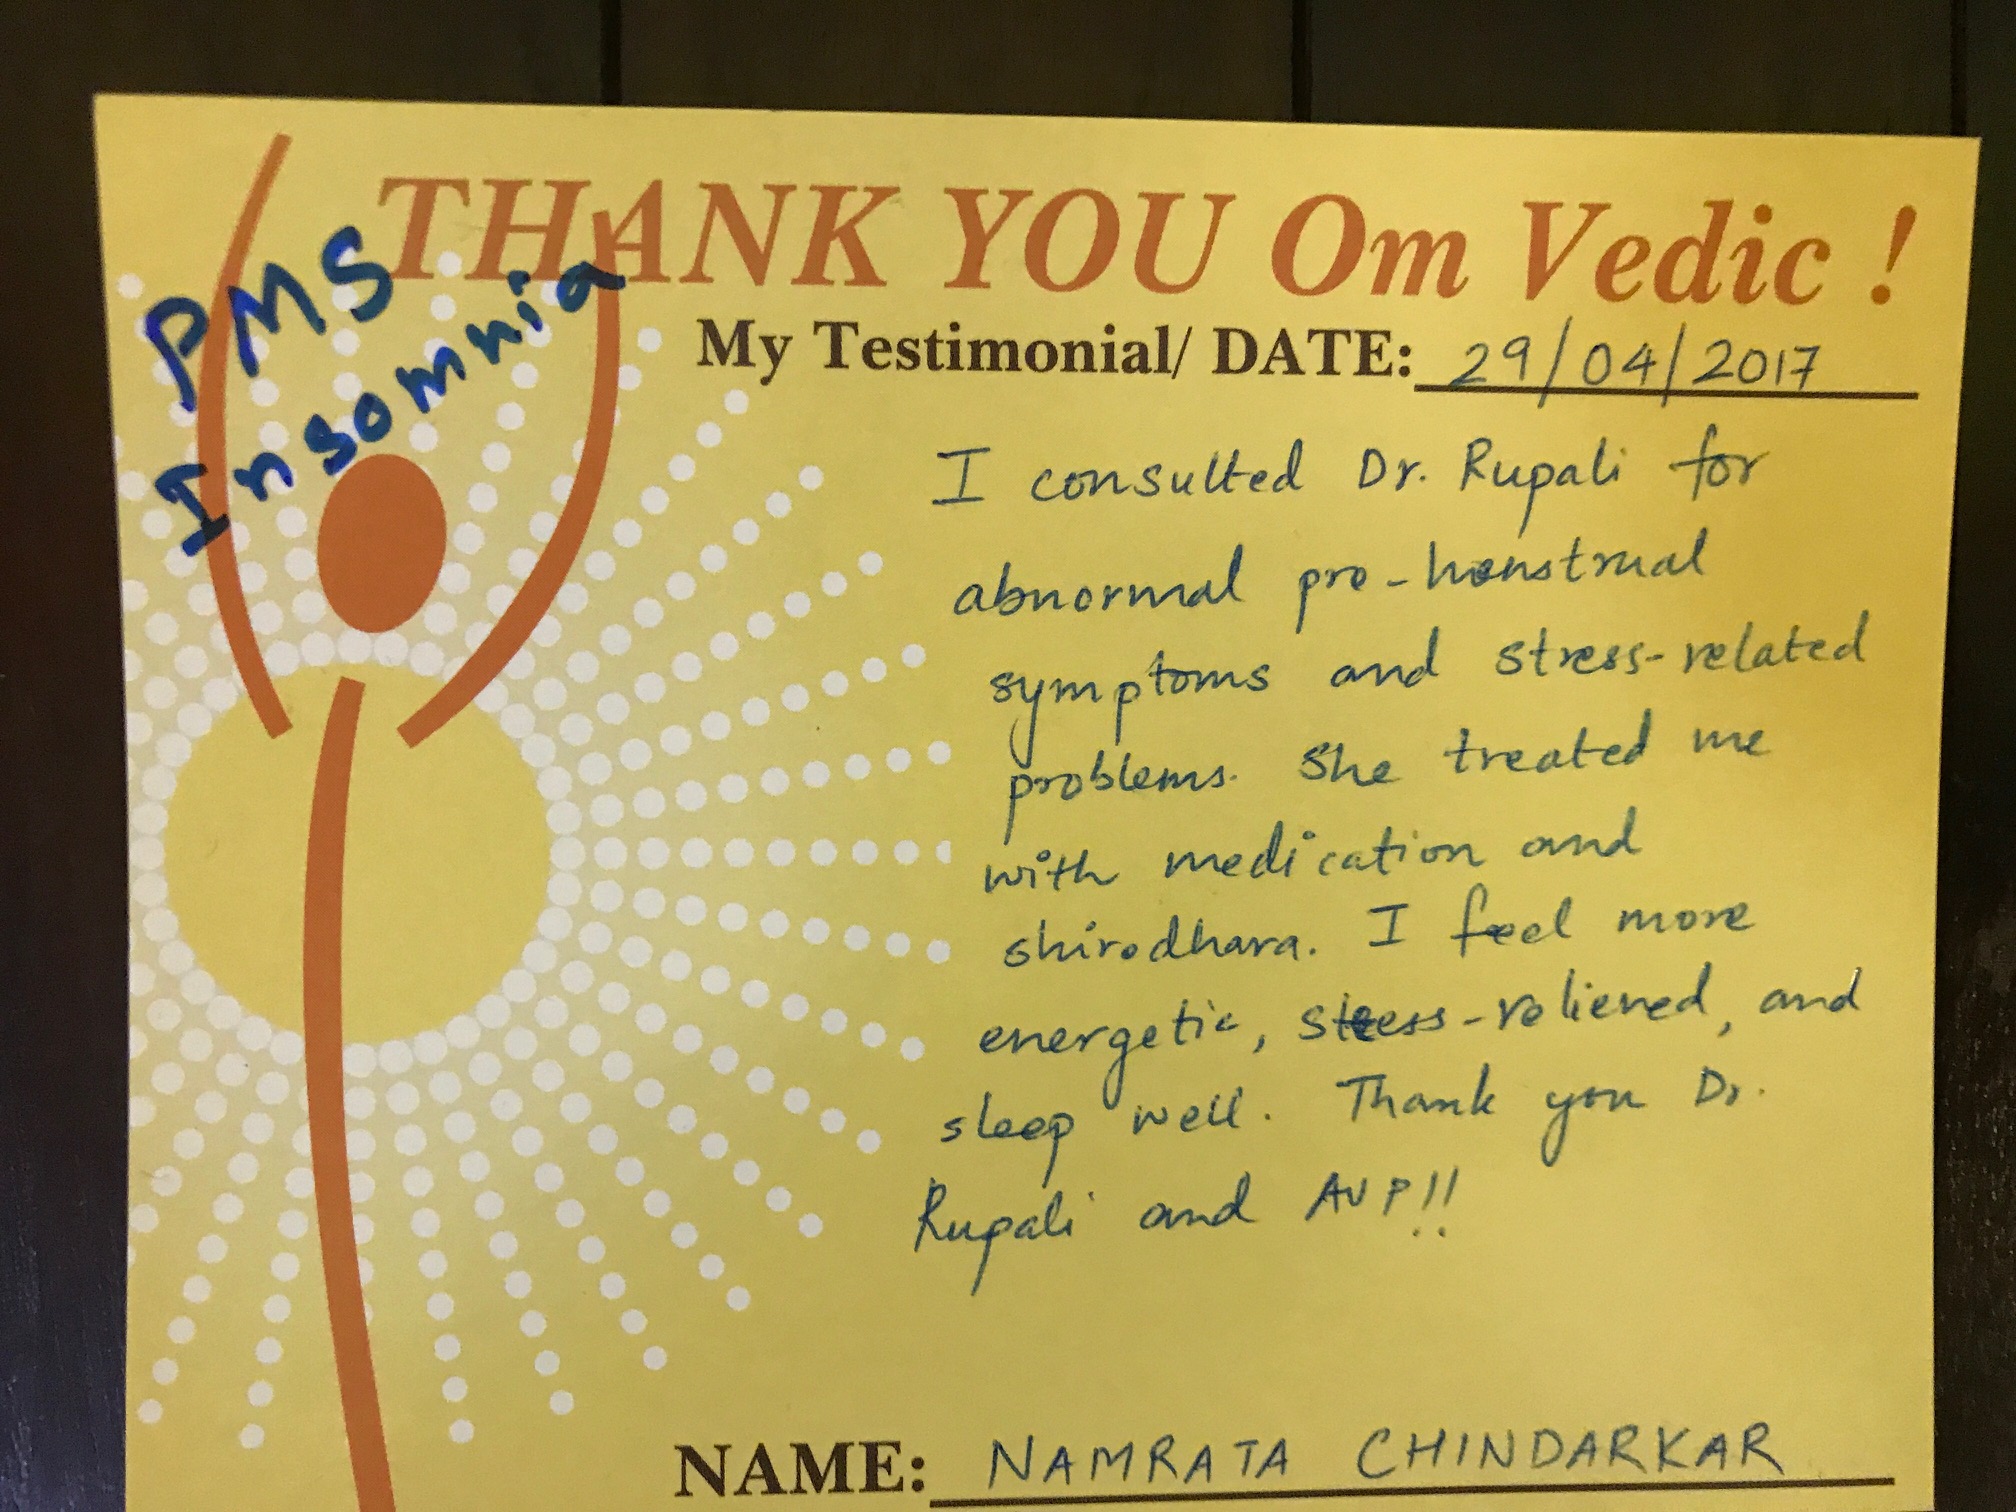 THANK YOU Om Vedic !
PMS
Insomnia
My Testimonial/ DATE: 29/04/2017
I consulted Dr. Rupali for
abnormal pre-menstrual
symptoms and stress-related
problems. She treated me
with medication and
shirodhara. I feel more
energetic, stress-relieved, and
sleep well. Thank you Dr.
Rupali and AVP!!
NAME: NAMRATA CHINDARKAR